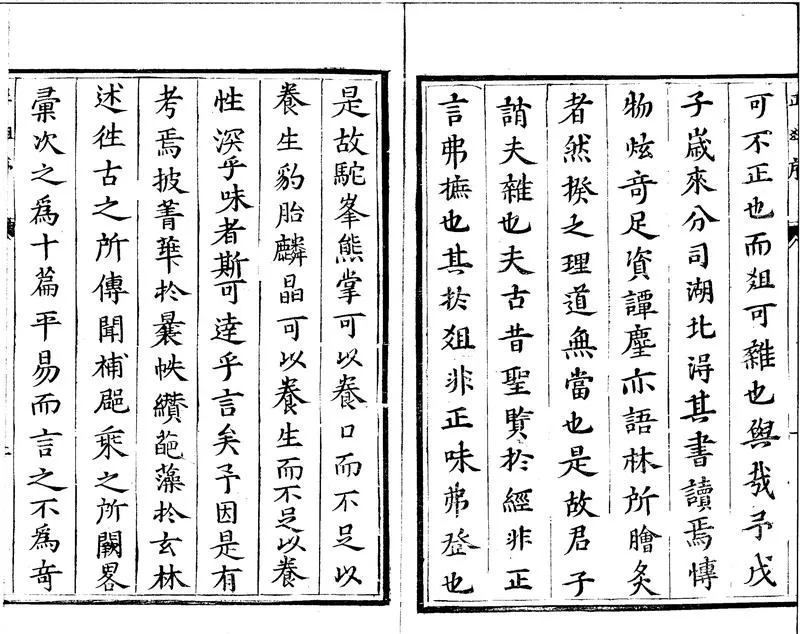 可不正也而爼可雜也與哉予戊
子歲來分司湖北淂其書讀焉慱
物炫竒足資譚麈亦語林所膾炙
者然揆之理道無當也是故君子
誚夫雜也夫古昔聖賢於經非正
言弗摭也其扵爼非正味弗登也
是故駝峯熊掌可以養口而不足以
養生豹胎麟晶可以養生而不足以養
性深乎味者斯可逹乎言矣予因是有
考焉披菁華扵曩帙纘葩藻扵玄林
述徃古之所傳聞補郒乘之所闕畧
彚次之為十篇平易而言之不為竒